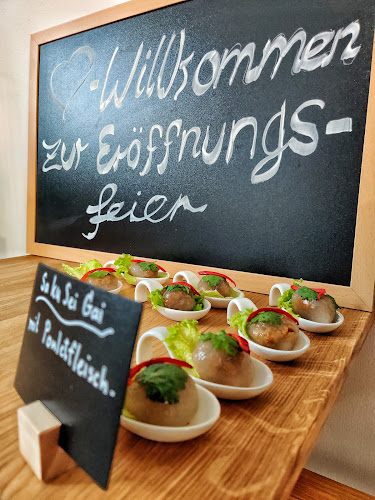 ♡-Willkommen
zur Eröffnungs-
feier
Sa Ku Sai Gai
mit Poulétfleisch